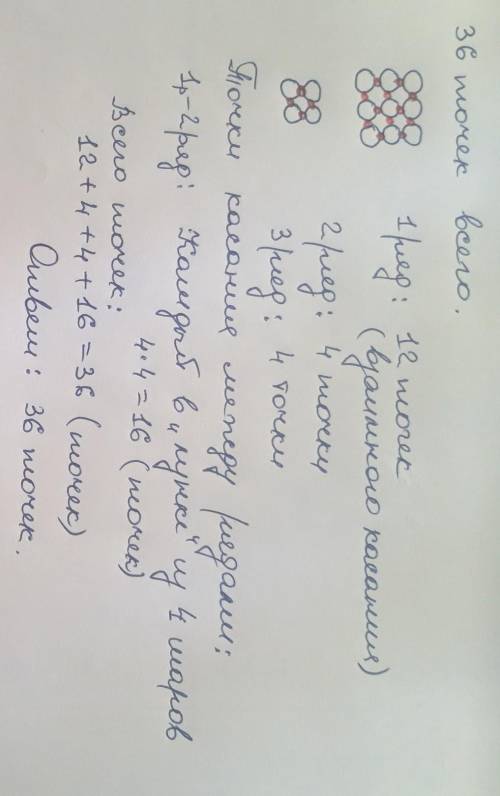 36 точек всего.
1 ряд: 12 точек
(взаимного касания)
2 ряд: 4 точки
3 ряд: 4 точки
Точки касания между рядами:
1,-2 ряд: Каждый в "лунке" из 4 шаров
4·4=16 (точек)
Всего точек:
12+4+4+16=36 (точек)
Ответ: 36 точек.